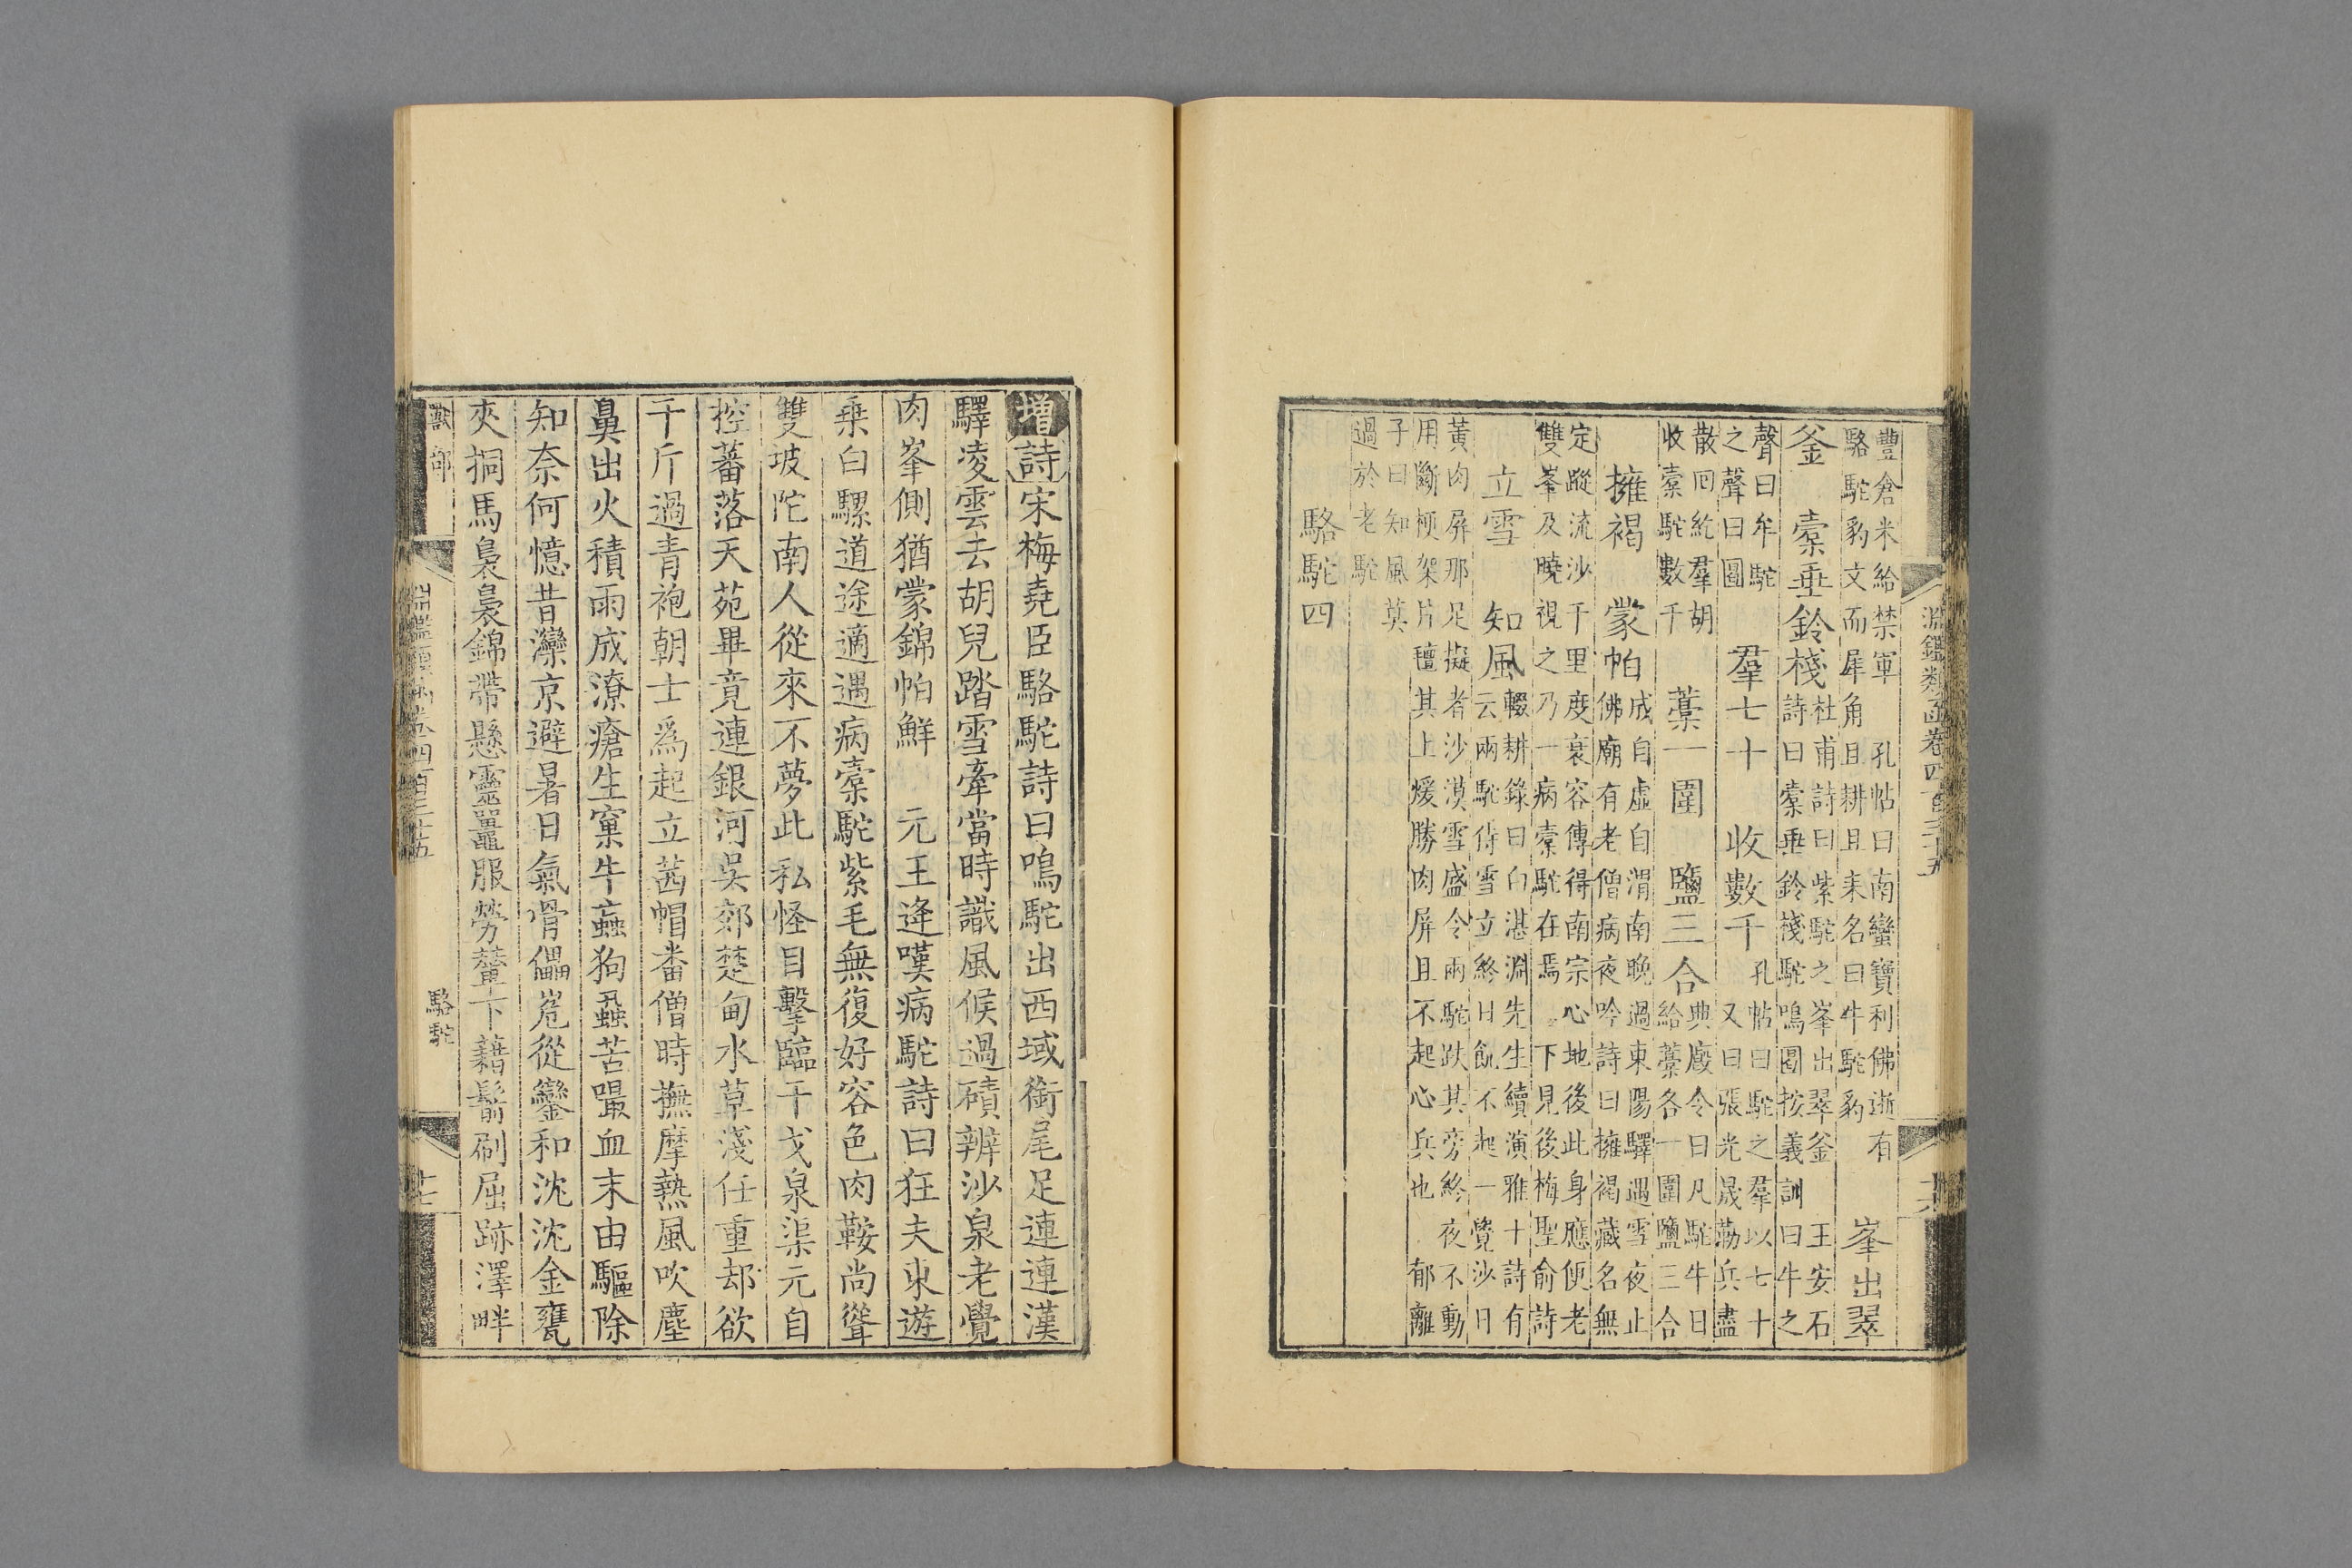 淵鑑類函卷四百三十五　十六
豐倉米給禁軍　孔帖曰南蠻寶利佛逝有
駱駝豹文而犀角且耕且耒名曰牛駝豹
峯出翠
釜　橐垂鈴棧
杜甫詩曰紫駝之峯出翠釜　王安石
詩曰橐垂鈴棧駝鳴圁按義訓曰牛之
聲曰牟駝
之聲曰圁
羣七十　收數千
孔帖曰駝之羣以七十
又曰張光晟勒兵盡
散回紇羣胡
收橐駝數千
藁一圍　鹽三合
典廄令曰凡駝牛日
給藁各一圍鹽三合
擁褐　蒙帕
成自虛自渭南晚過東陽驛遇雪夜止
佛廟有老僧病夜吟詩曰擁褐藏名無
定蹤流沙千里度衰容傳得南宗心地後此身應便老
雙峯及曉視之乃一病橐駝在焉　下見後梅聖俞詩
立雪　知風
輟耕錄曰白湛淵先生續演雅十詩有
云兩駝侍雪立終日飢不起一覺沙日
黃肉屏那足擬者沙漠雪盛令兩駝趺其旁終夜不動
用斷梗架片氊其上煖勝肉屏且不起心兵也　郁離
子曰知風莫
過於老駝
駱駝四
增詩宋梅堯臣駱駝詩曰鳴駝出西域銜尾足連連漢
驛凌雲去胡兒踏雪牽當時識風候過磧辨沙泉老覺
肉峯側猶蒙錦帕鮮　元王逢嘆病駝詩曰狂夫東遊
乗白騾道途適遇病橐駝紫毛無復好容色肉鞍尚聳
雙坡陀南人從來不夢此私怪目擊臨干戈泉渠元自
控蕃落天苑畢竟連銀河吳郊楚甸水草淺任重却欲
千斤過青袍朝士爲起立茜帽畨僧時撫摩熱風吹塵
鼻出火積雨成潦瘡生窠牛䖟狗蝨苦嘬血末由驅除
知奈何憶昔灤京避暑日氣骨儡嵬從鑾和沈沈金甕
夾挏馬裊裊錦帶懸靈鼉服勞輦下藉鬋刷屈跡澤畔
獸部　淵鑑類函卷四百三十五　駱駝　十七